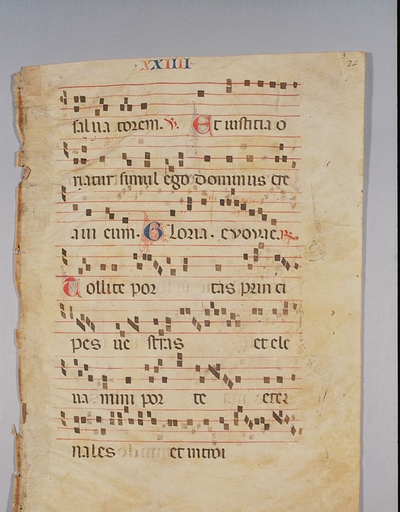 XXIIII
salua torem. V. Et iustitia o
riatur simul ego dominus cre
aui eum. Gloria. evovae. R
Tollite por tas prin ci
pes ue stras et ele
ua mini por te eter
nales et introi